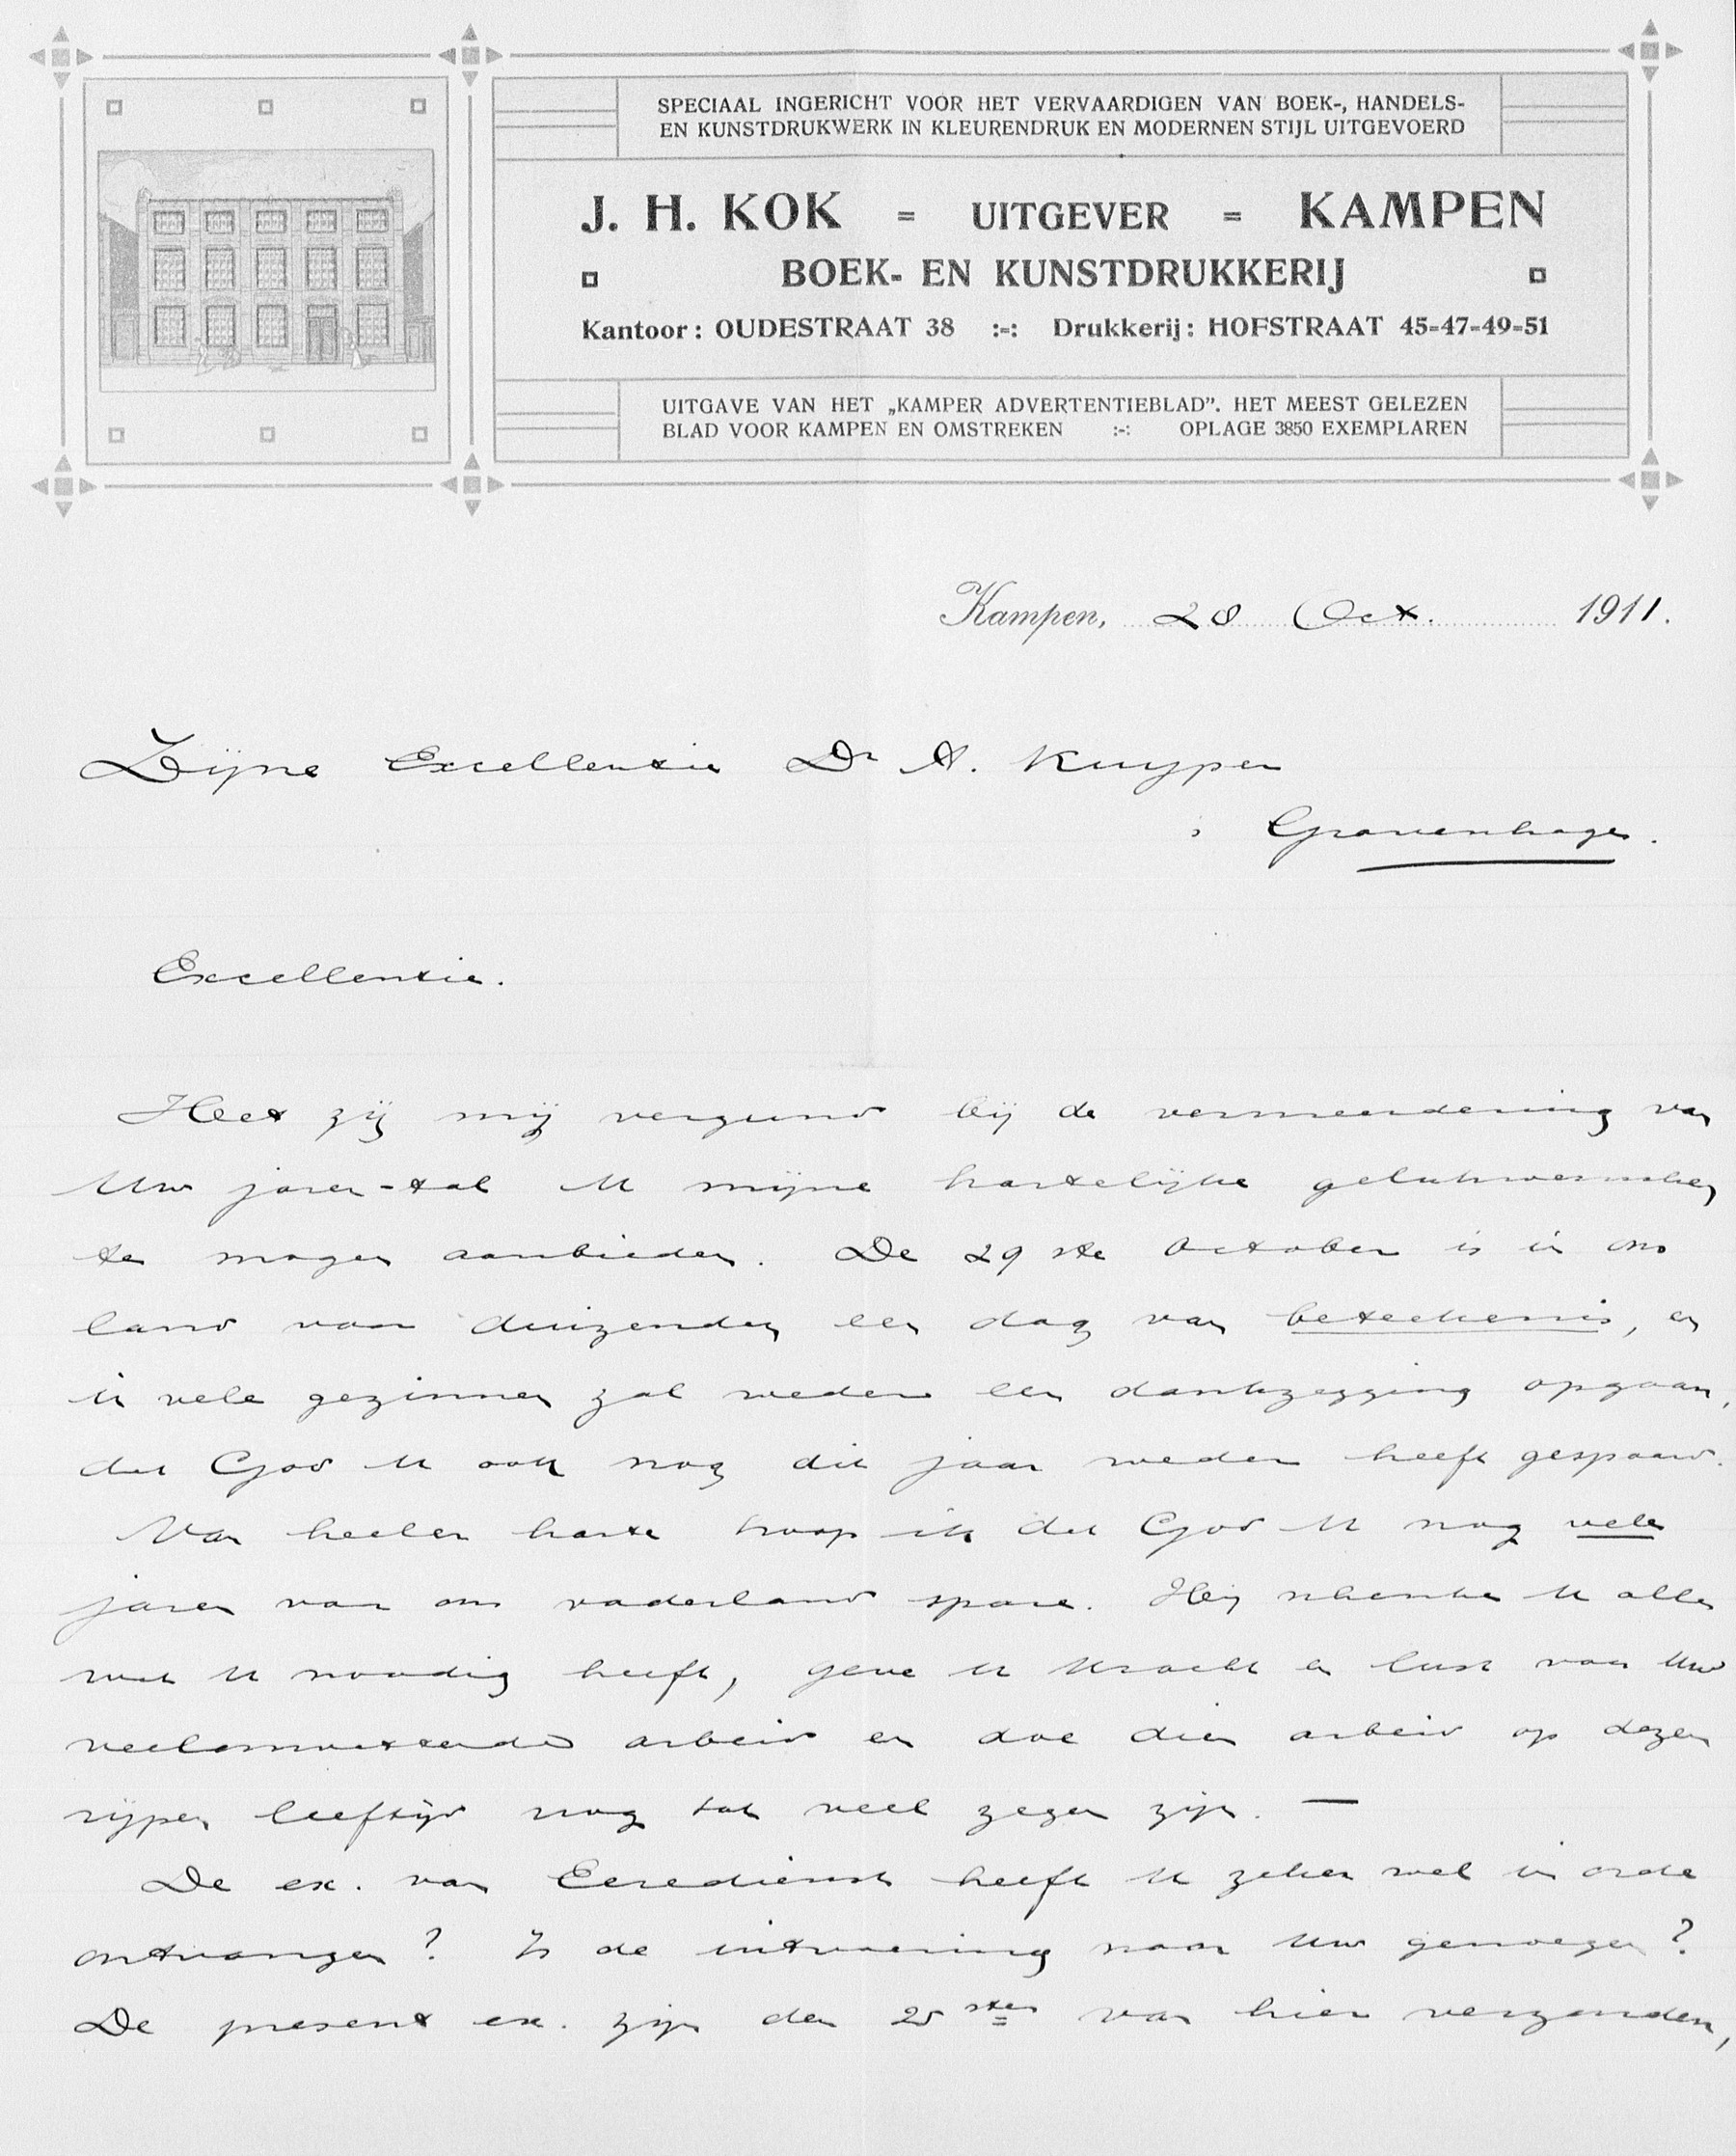 SPECIAAL INGERICHT VOOR HET VERVAARDIGEN VAN BOEK-, HANDELS-
EN KUNSTDRUKWERK IN KLEURENDRUK EN MODERNEN STIJL UITGEVOERD
J. H. KOK = UITGEVER = KAMPEN
BOEK- EN KUNSTDRUKKERIJ
Kantoor: OUDESTRAAT 38 :-: Drukkerij: HOFSTRAAT 45-47-49-51
UITGAVE VAN HET „KAMPER ADVERTENTIEBLAD”. HET MEEST GELEZEN
BLAD VOOR KAMPEN EN OMSTREKEN :-: OPLAGE 3850 EXEMPLAREN
Kampen, 28 Oct. 1911.
Zijne Excellentie Dr A. Kuyper
's Gravenhage.
Excellentie.
Heet zij mij vergund bij de vermeerdering van
Uw jaren-tal U mijne hartelijke gelukwenschen
te mogen aanbieden. De 29ste October is in ons
land voor duizenden een dag van beteekenis, en
in vele gezinnen zal weder een dankzegging opgaan,
dat God U ook nog dit jaar weder heeft gespaard.
Van heeler harte hoop ik dat God U nog vele
jaren voor ons vaderland spare. Hij schenke U alles
wat U noodig heeft, geve U kracht en lust voor Uw
veelomvattende arbeid en doe dien arbeid op dezen
rijpen leeftijd nog tot veel zegen zijn. —
De ex. van Eeredienst heeft U zeker wel in orde
ontvangen? Is de uitvoering naar Uw genoegen?
De present ex. zijn den 25sten van hier verzonden,